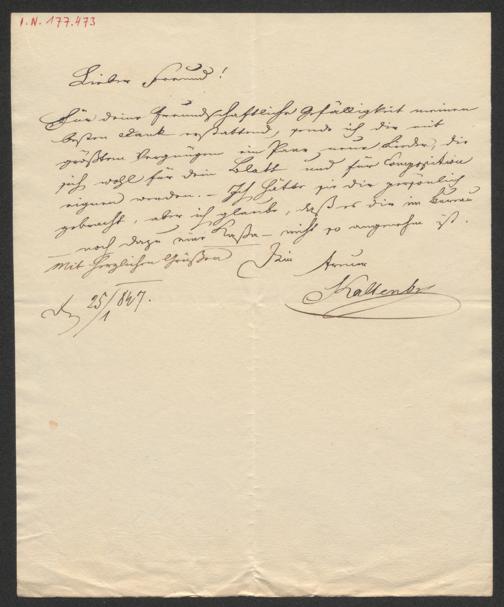 I.N. 177.473
Lieber Freund!
Für deine freundschaftliche Gefälligkeit meinen
besten Dank erstattend, sende ich dir mit
größtem Vergnügen ein Paar neue Lieder, die
sich wohl für dein Blatt und für Composition
eignen werden. – Ich hätte sie dir persönlich
gebracht, aber ich glaube, daß es dir im Bureau
– noch dazu eine Kassa – nicht so angenehm ist.
Mit herzlichen Grüßen Dein
Kaltenb
25/1 847.